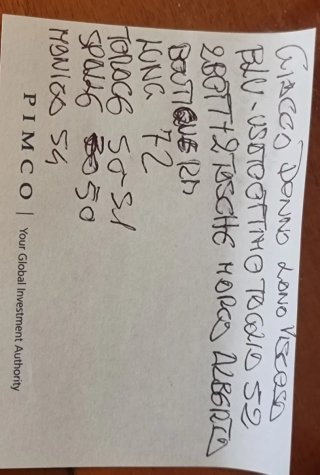 GIACCA DONNA LANA VISCOSA
BLU - USATO OTTIMO TAGLIA 52
2 BOTT + 2 TASCHE MARCA
LUNG 72
TORACE 50-51
SPALLE 50
MANICA 54
PIMCO | Your Global Investment Authority